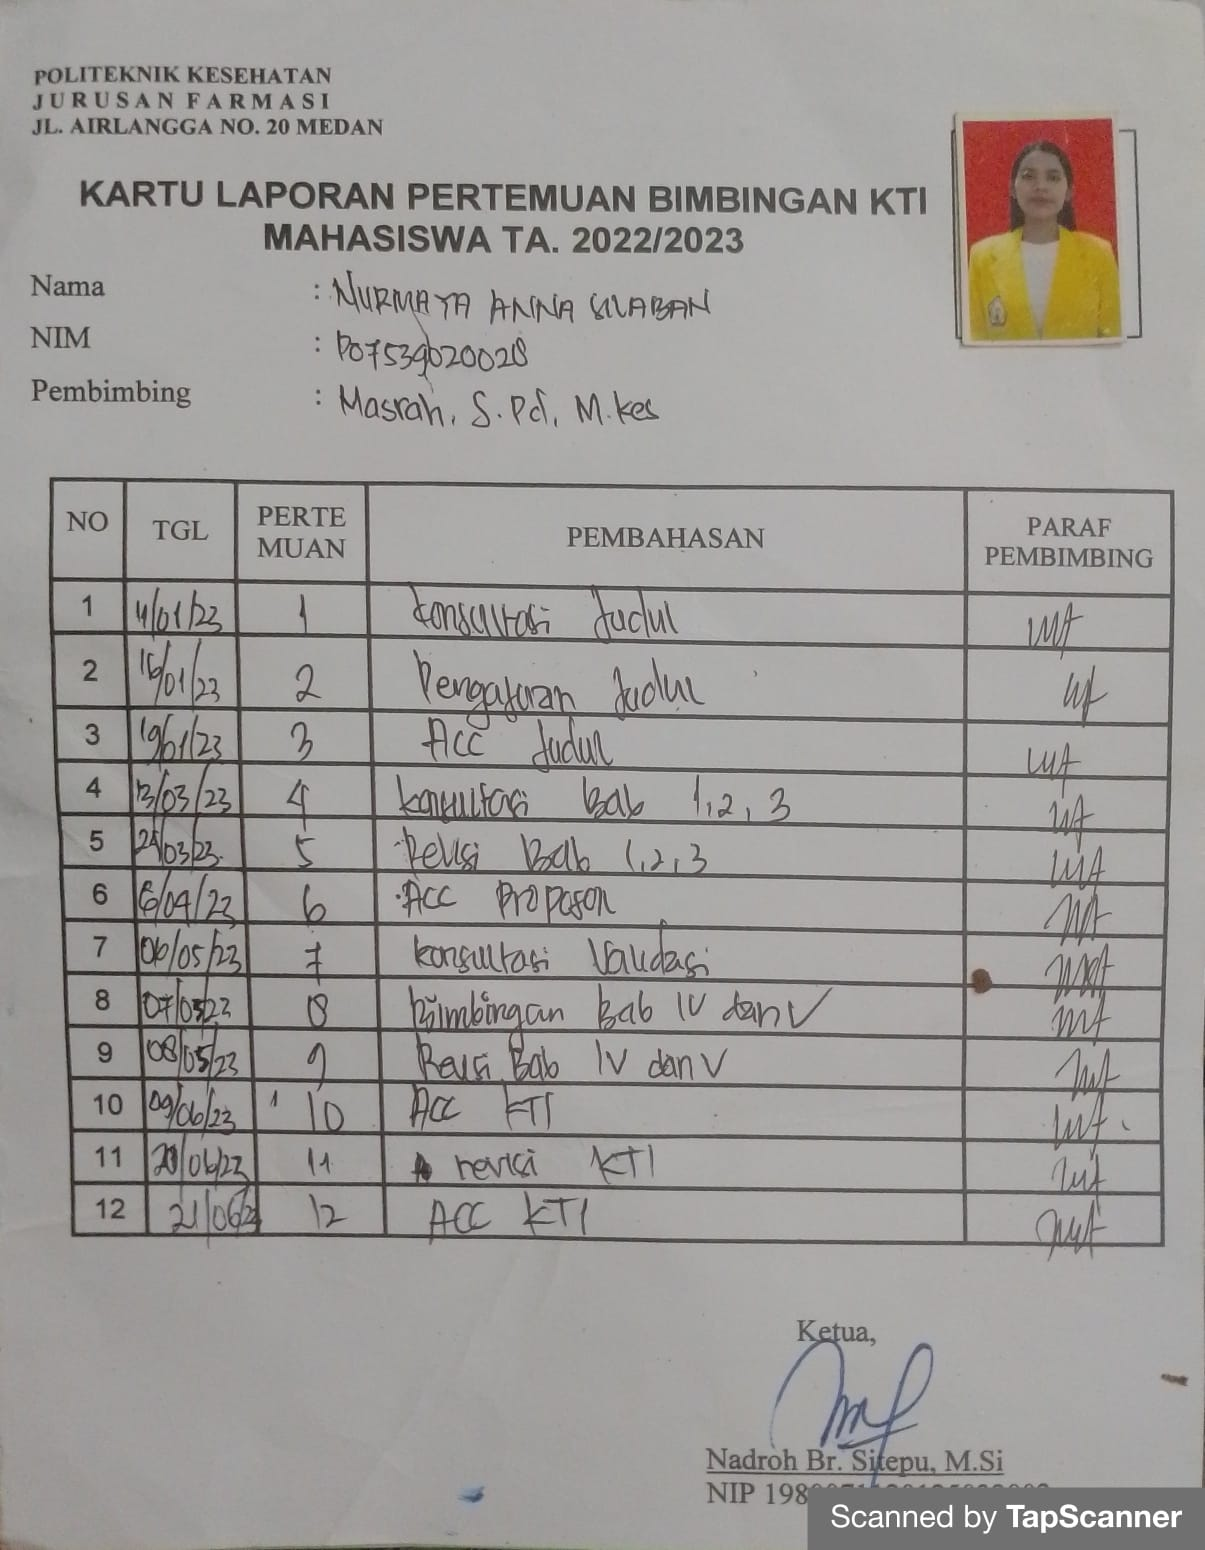 POLITEKNIK KESEHATAN
JURUSAN FARMASI
JL. AIRLANGGA NO. 20 MEDAN
KARTU LAPORAN PERTEMUAN BIMBINGAN KTI
MAHASISWA TA. 2022/2023
Nama : NURMAYA ANNA SILABAN
NIM : P07539020028
Pembimbing : Masrah, S.Pd, M.Kes
NO TGL PERTE MUAN PEMBAHASAN PARAF PEMBIMBING
1 11/01/23 1 konsultasi Judul
2 16/01/23 2 Pengajuan Judul
3 19/01/23 3 ACC Judul
4 13/03/23 4 konsultasi Bab 1,2,3
5 5 Revisi Bab 1,2,3
6 6 ACC
7 06/05/23 7 konsultasi Validasi
8 07/05/23 8 Bimbingan Bab IV dan V
9 08/05/23 9 Revisi Bab IV dan V
10 09/06/23 10 ACC KTI
11 20/06/23 11 revisi KTI
12 12 ACC KTI
Ketua,
Nadroh Br. Sitepu, M.Si
NIP
Scanned by TapScanner